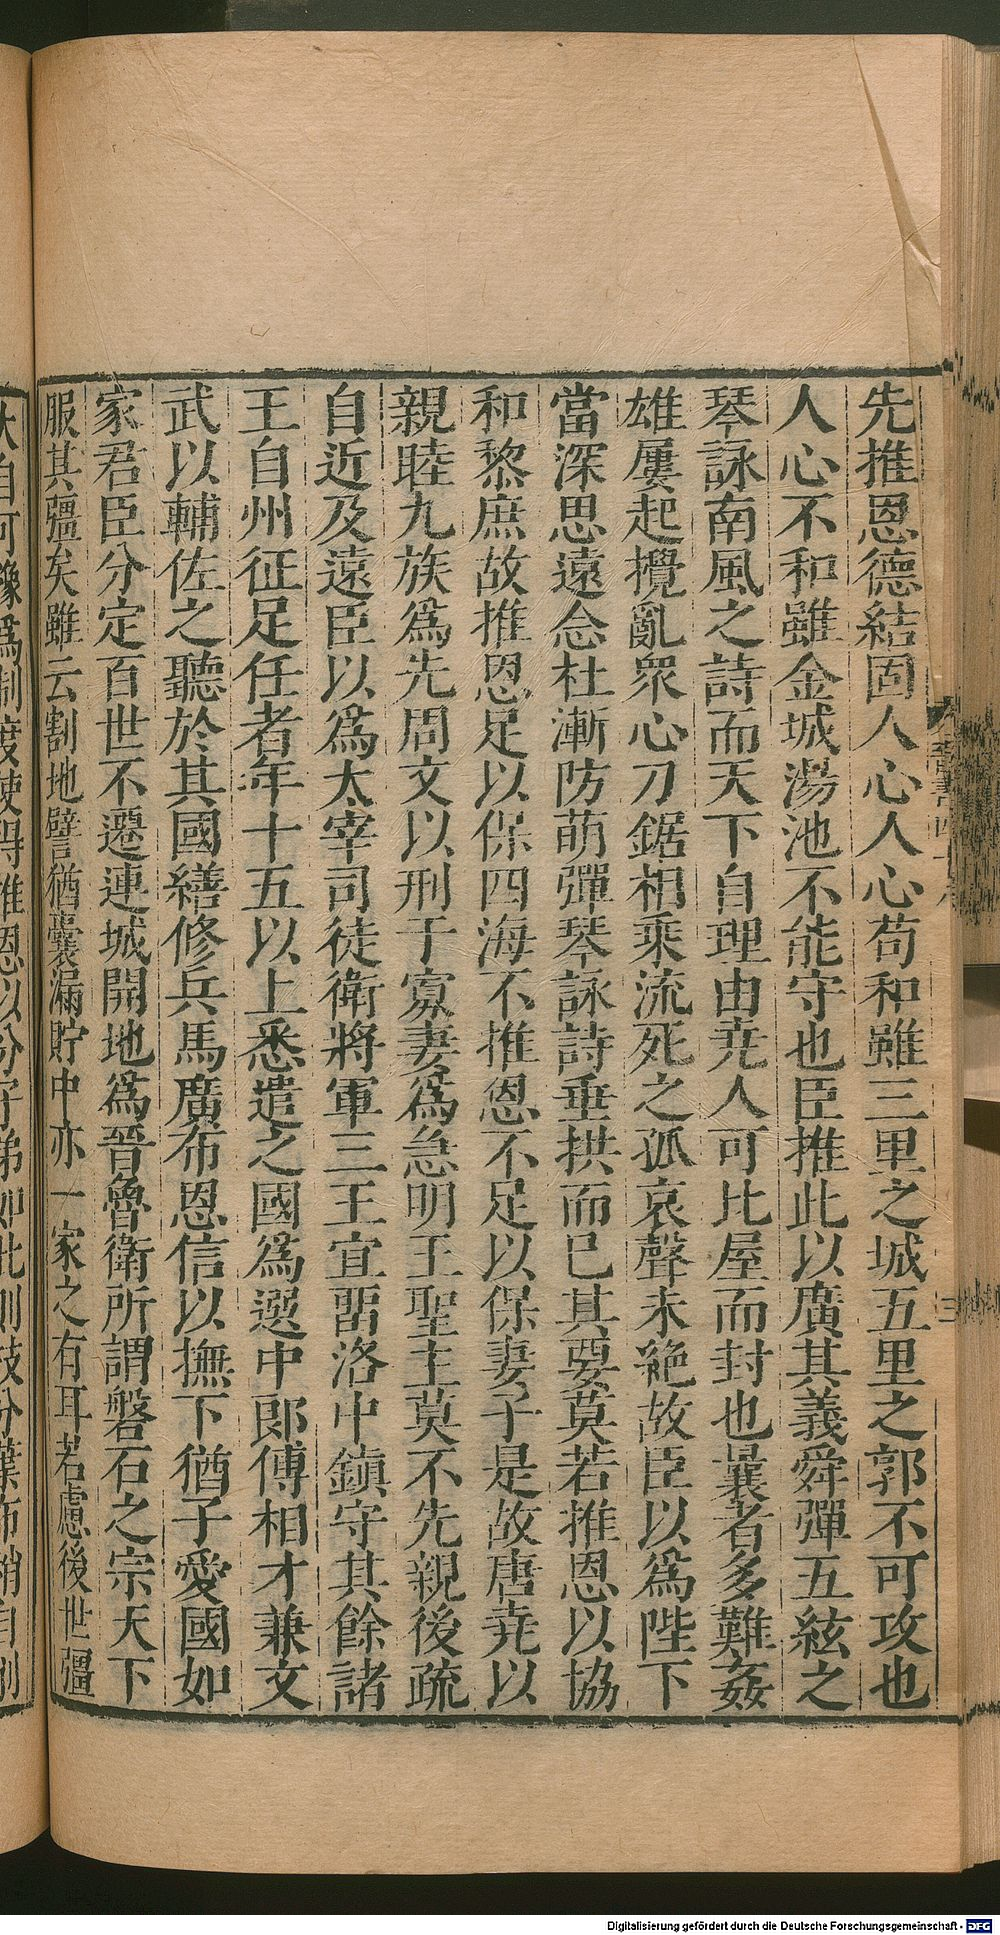 先推恩德結固人心人心苟和雖三里之城五里之郭不可攻也
人心不和雖金城湯池不能守也臣推此以廣其義舜彈五絃之
琴詠南風之詩而天下自理由尭人可比屋而封也曩者多難姦
雄屢起攪亂衆心刀鋸相乘流死之孤哀聲未絶故臣以爲陛下
當深思遠念杜漸防萌彈琴詠詩垂拱而已其要莫若推恩以協
和黎庶故推恩足以保四海不推恩不足以保妻子是故唐尭以
親睦九族爲先周文以刑于寡妻爲急明王聖主莫不先親後疏
自近及遠臣以爲太宰司徒衛將軍三王宜留洛中鎮守其餘諸
王自州征足任者年十五以上悉遣之國爲選中郎傅相才兼文
武以輔佐之聽於其國繕修兵馬廣布恩信以撫下猶子愛國如
家君臣分定百世不遷連城開地爲晉魯衛所謂磐石之宗天下
服其彊矣雖云割地譬猶囊漏貯中亦一家之有耳若慮後世彊
自可豫爲制度使得推恩以分子弟如此則枝分葉布稍自削
Digitalisierung gefördert durch die Deutsche Forschungsgemeinschaft - DFG